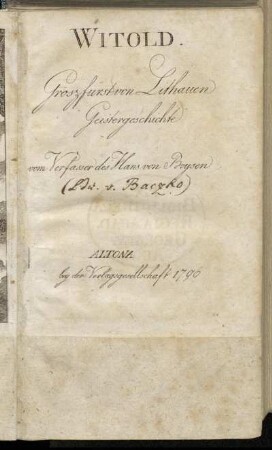 WITOLD.
Groszfürst von Lithauen
Geistergeschichte
vom Verfasser des Hans von Beysen
v. Baczko)
ALTONA
bey der Verlagsgesellschaft 1790